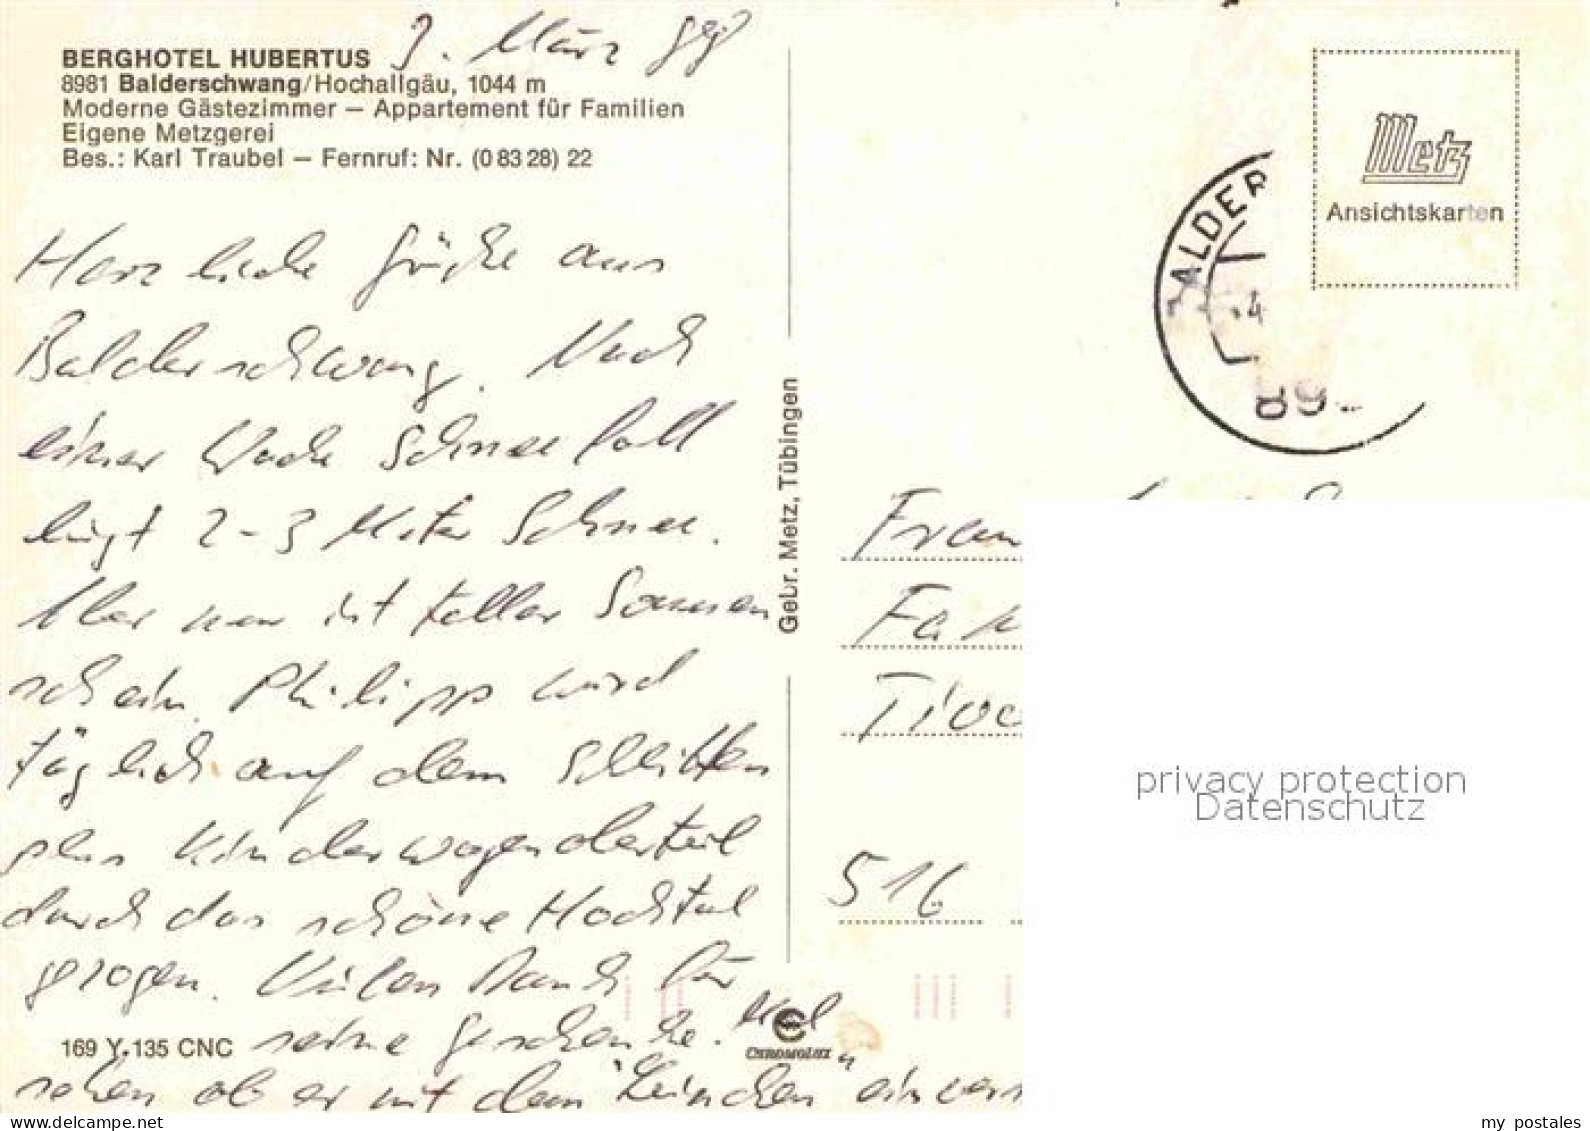 3. März
BERGHOTEL HUBERTUS
8981 Balderschwang/Hochallgäu, 1044 m
Moderne Gästezimmer — Appartement für Familien
Eigene Metzgerei
Bes.: Karl Traubel — Fernruf: Nr. (0 83 28) 22
Herzliche Grüße aus
Balderschwang. Nach
einer Woche Schneefall
liegt 2-3 Meter Schnee.
Aber nun ist toller Sonnen
schein. Philipp wird
täglich auf dem Schlitten
plus Kinderwagenoberteil
durch das schöne Hochtal
gezogen. Vielen Dank für
seine Geschenke. Mal
sehen ob er mit dem "Leinchen" einvers
169 Y 135 CNC
CHROMOLUX
Gebr. Metz, Tübingen
Metz
Ansichtskarten
BALDER
-4
89
Fa
516
privacy protection
Datenschutz
www.delcampe.net
my_postales